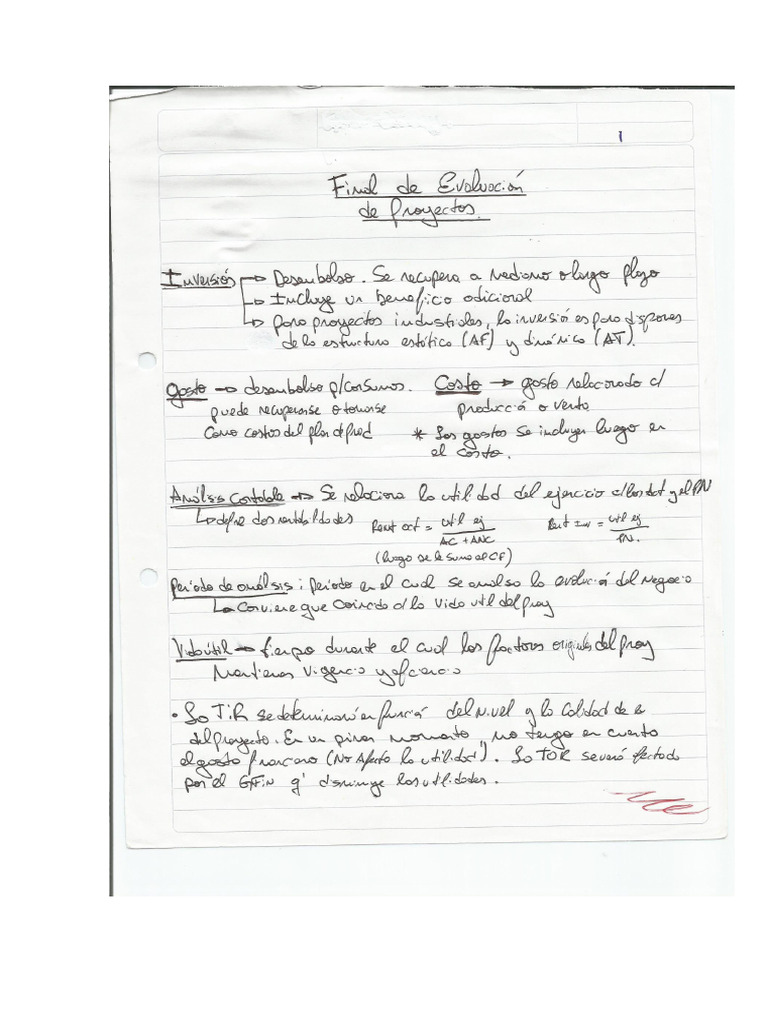 1
Final de Evaluación
de Proyectos.
Inversión → Desembolso. Se recupera a mediano o largo plazo
→ Incluye un beneficio adicional
→ Para proyectos industriales, la inversión es para disponer
de la estructura estática (AF) y dinámica (AT).
Gasto → desembolso p/consumos. Costo → gasto relacionado c/
puede recuperarse o tomarse producción o venta
como costos del plan de prod * Los gastos se incluyen luego en
el costo.
Análisis Contable → Se relaciona la utilidad del ejercicio c/ los act y el PN
↳ define dos rentabilidades Rent act = util ej / AC + ANC Rent Inv = util ej / PN.
(luego se le suma al CF)
Período de análisis: período en el cual se analiza la evolución del Negocio
↳ Conviene que coincida c/ la Vida útil del proy
Vida útil → tiempo durante el cual los factores originales del proy
Mantienen vigencia y eficiencia
• La TIR se determinará en función del Nivel y la Calidad de
del proyecto. En un primer momento, no tengo en cuenta
el gasto financiero (No Afecta la utilidad). La TOR se verá afectada
por el GFin q' disminuye las utilidades.